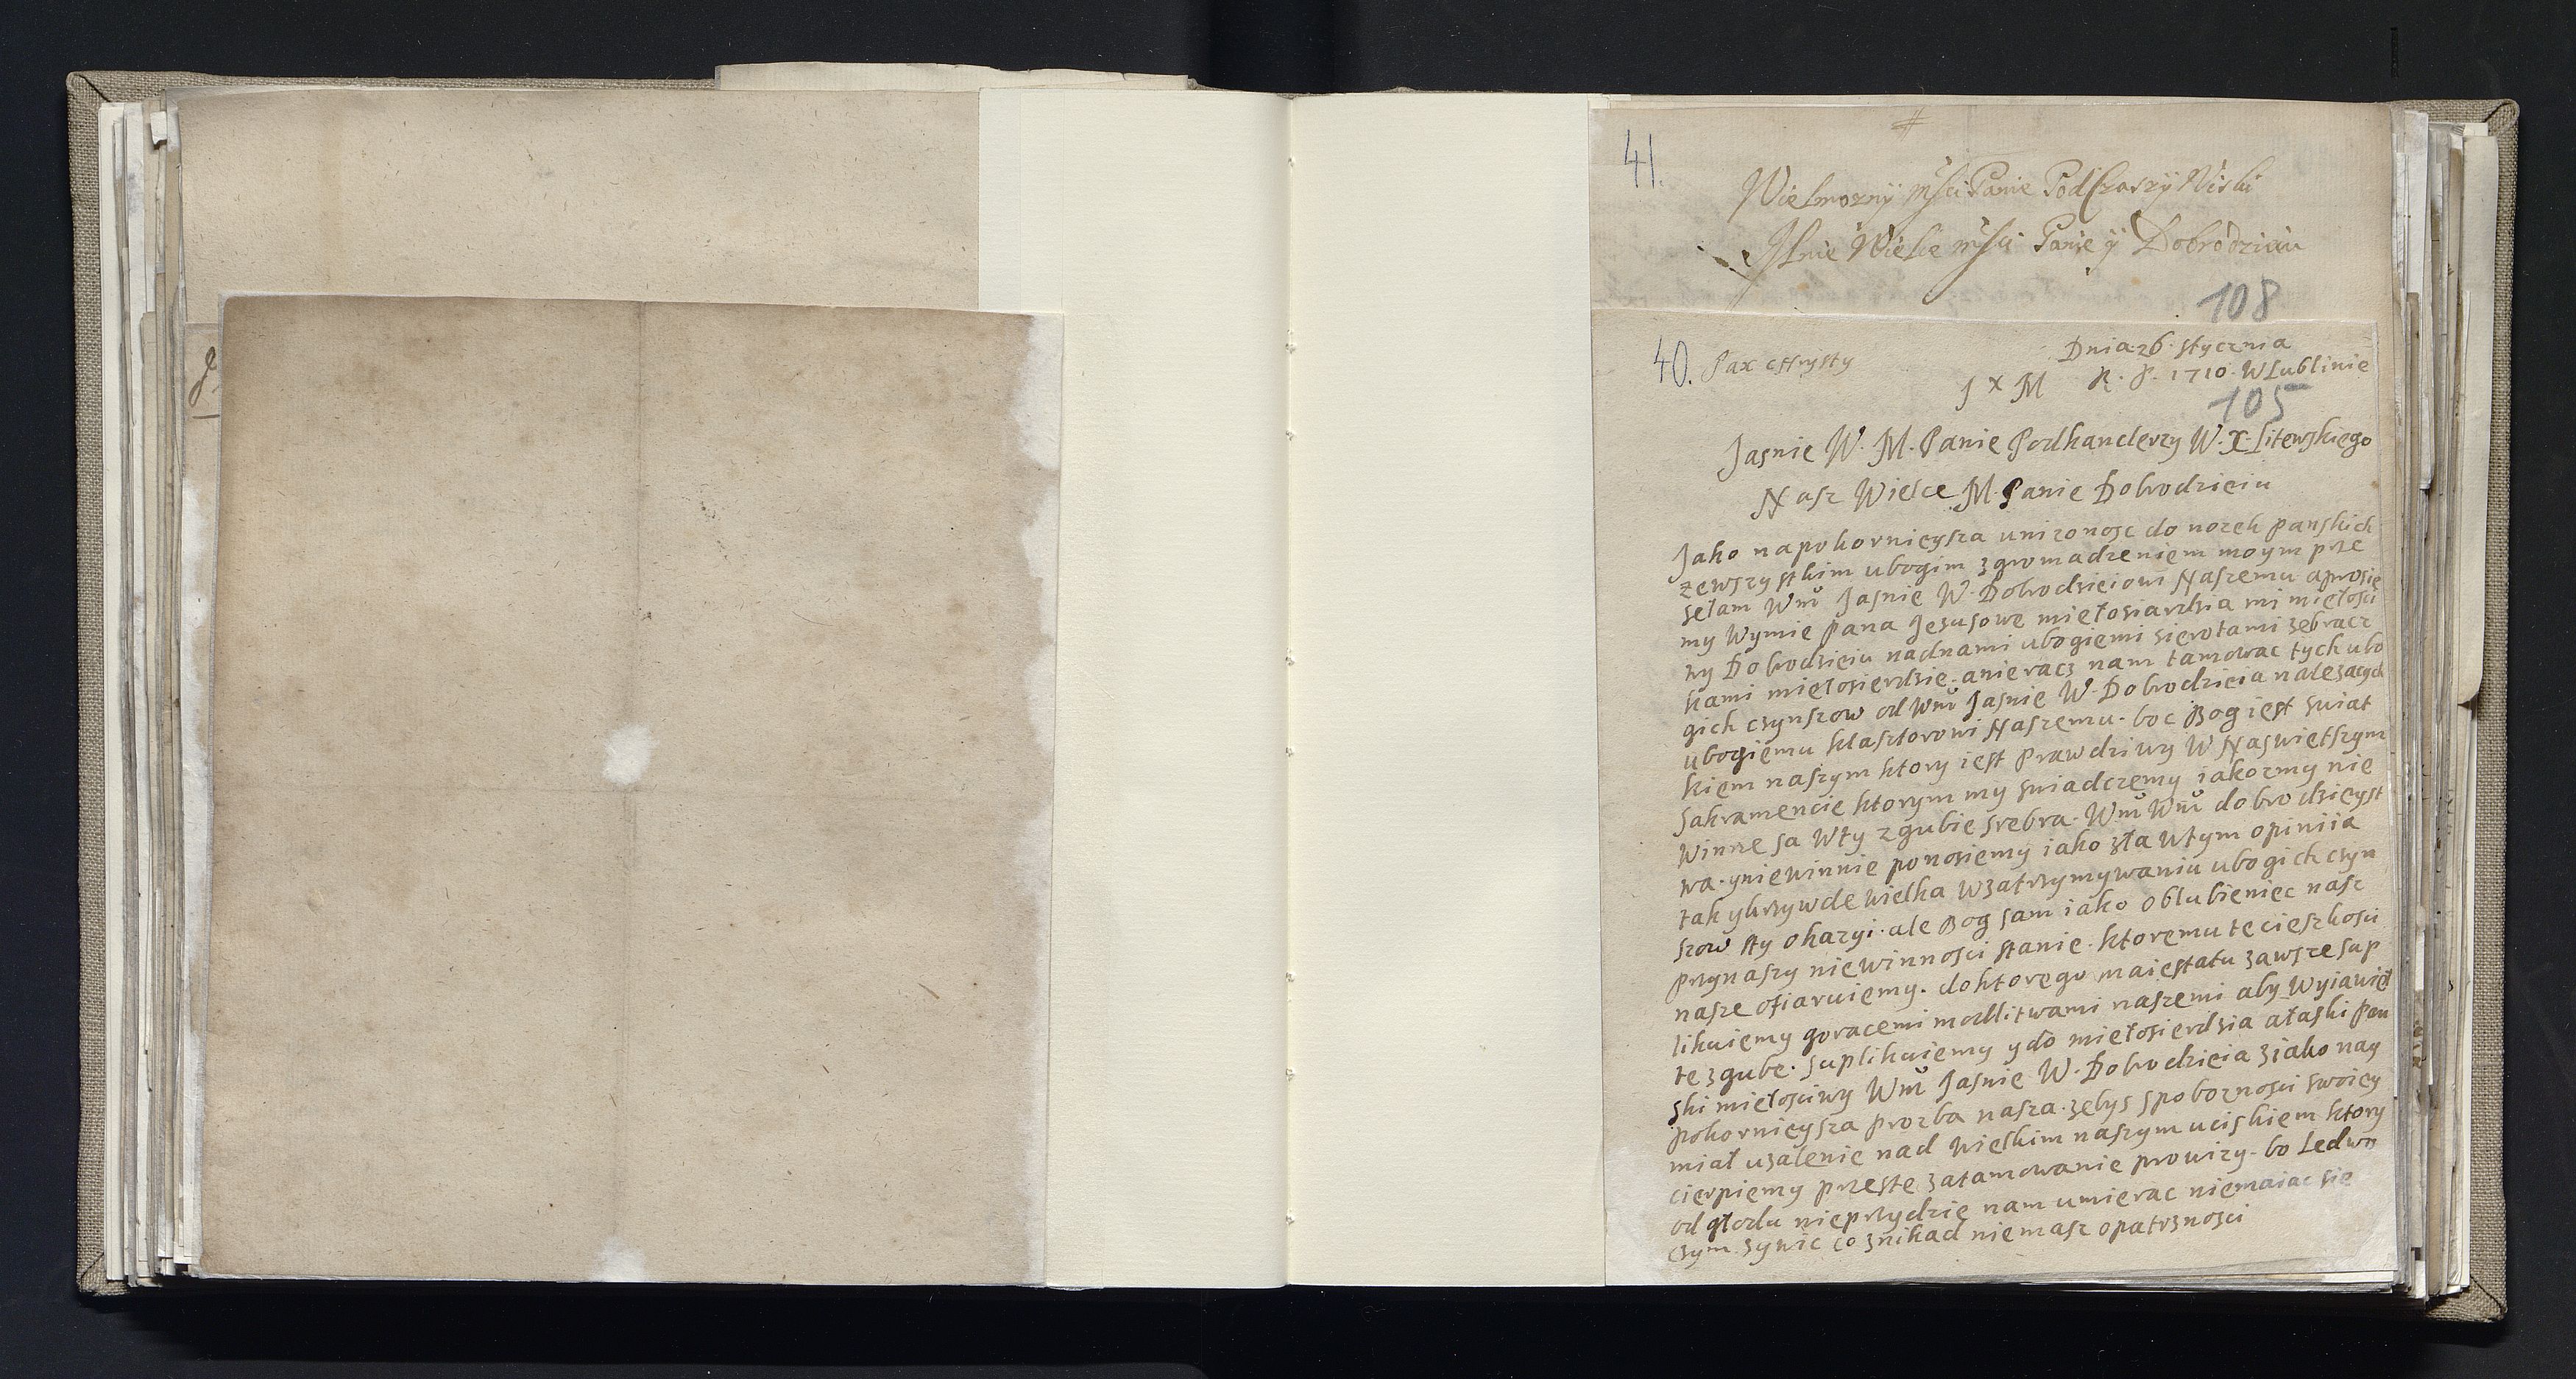 41.
Wielmozny Mści Panie PodCzaszy
Mnie Wielce Mści Panie y Dobrodzieiu
108
40. Pax Christy
Dnia 26 stycznia
J x M R. P. 1710. W Lublinie
105
Jasnie W. M. Panie Podkanclerzy W. X. Litewskiego
Nasz Wielce M. Panie Dobrodzieiu
Jako napokornieysza unizonosc do nozek panskich
zewszystkim ubogim zgromadzeniem moym prze
sełam Wm Jasnie W. Dobrodzieiowi Naszemu aprosie
my Wymie pana Jezusowe miełosiardzia mi miełosci
wy Dobodzieiu nadnami ubogiemi sierotami zebracz
kami miełosierdzie. anieracz nam tamowac tych ubo
gich czynszow od Wm Jasnie W. Dobrodzieia nalezacych
ubogiemu klasztorowi Naszemu. boc Bog iest swiat
kiem naszym ktory iest prawdziwy W Naswietszym
sakramencie ktorym my swiadczemy iakozmy nie
winne sa Wty zgubie srebra. Wm Wm dobrodzieyst
wa. yniewinnie ponosiemy iako zła wtym opiniia
tak ykrzywde wielka wzatrzymywaniu ubogich czyn
szow sty okazyi. ale Bog sam iako oblubieniec nasz
przynaszy niewinnosci stanie. ktoremu te cieszkosci
nasze ofiaruiemy. doktorego maiestatu zawsze sup
likuiemy goracemi modlitwami naszemi aby wyiawieł
te zgube. suplikuiemy ydo miełosierdzia ałaski pan
ski miełosciwy Wm Jasnie W. Dobrodzieia ziako nay
pokornieysza prozba nasza. zebys spoboznosci swoiey
miał uzalenie nad wielkim naszym uciskiem ktory
cierpiemy przeste zatamowanie prowizy. bo Ledwn
od głodu nieprzydzie nam umierac niemaiac sie
czym zywic co znikad niemasz opatrznosci